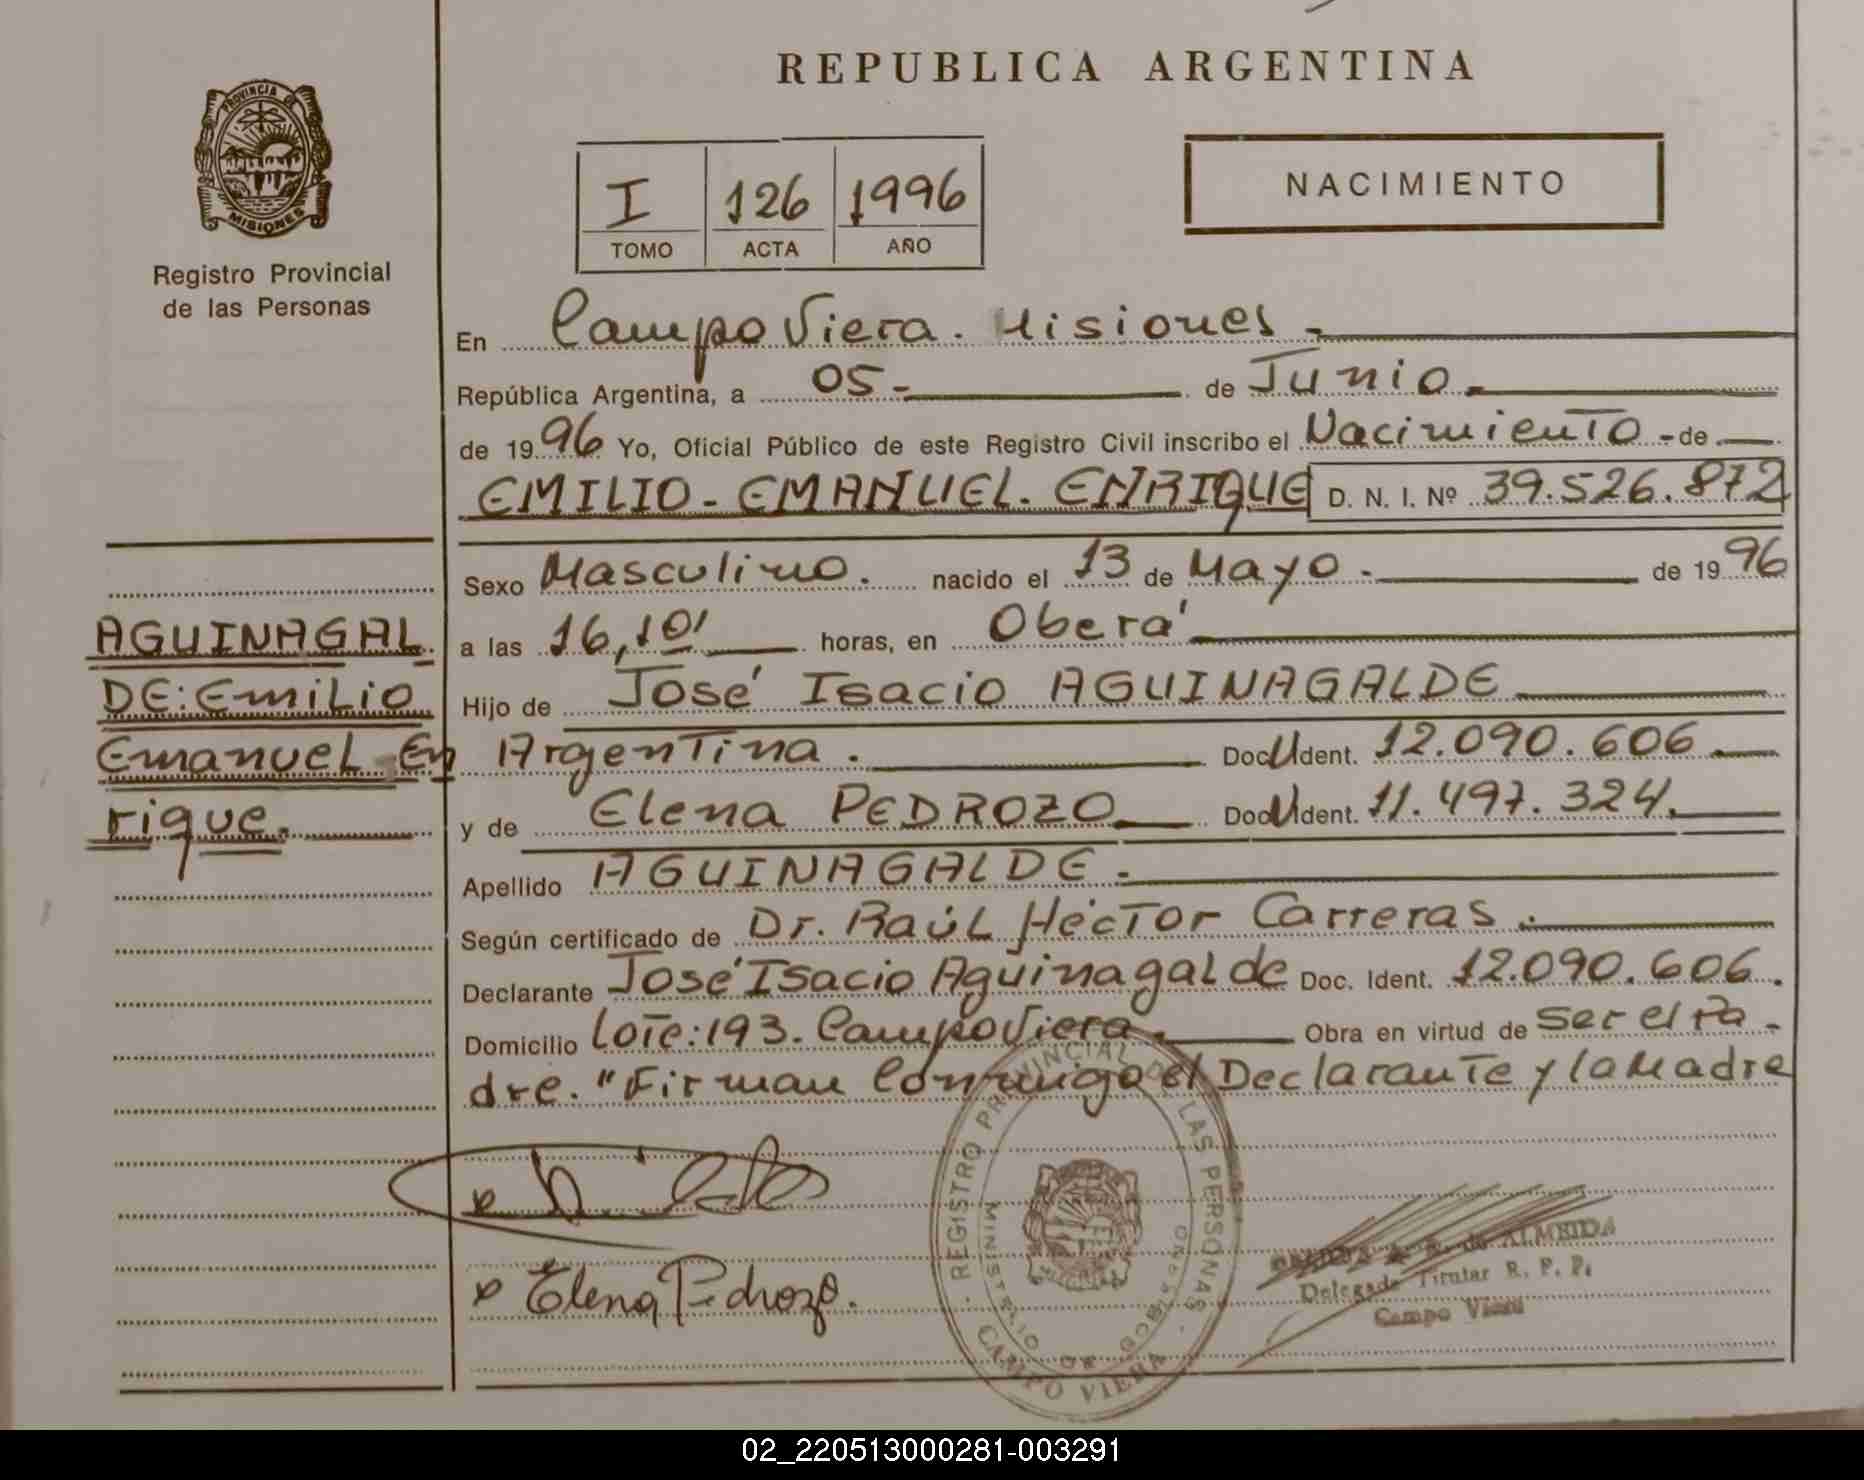 REPUBLICA ARGENTINA
PROVINCIA DE
MISIONES
Registro Provincial
de las Personas
I 126 1996
TOMO ACTA AÑO
NACIMIENTO
En Campo Viera. Misiones.
República Argentina, a 05 de Junio.
de 1996 Yo, Oficial Público de este Registro Civil inscribo el Nacimiento de
EMILIO-EMANUEL. ENRIQUE D. N. I. Nº 39.526.872
Sexo Masculino. nacido el 13 de Mayo. de 1996
a las 16,10' horas, en Oberá
Hijo de José Isacio AGUINAGALDE
Argentina. Doc. Ident. 12.090.606
y de Elena PEDROZO Doc. Ident. 11.497.324.
Apellido AGUINAGALDE.
Según certificado de Dr. Raúl Héctor Carreras.
Declarante José Isacio Aguinagalde Doc. Ident. 12.090.606.
Domicilio Lote:193. Campo Viera. Obra en virtud de ser el Pa-
dre. "Firman Conmigo el Declarante y la Madre
AGUINAGAL
DE: Emilio
Emanuel En
rique.
Elena Pedrozo.
REGISTRO PROVINCIAL DE LAS PERSONAS
MINISTERIO DE GOBIERNO
CAMPO VIERA
de ALMEIDA
Delegada Titular R. P. P.
Campo Viera
02_220513000281-003291